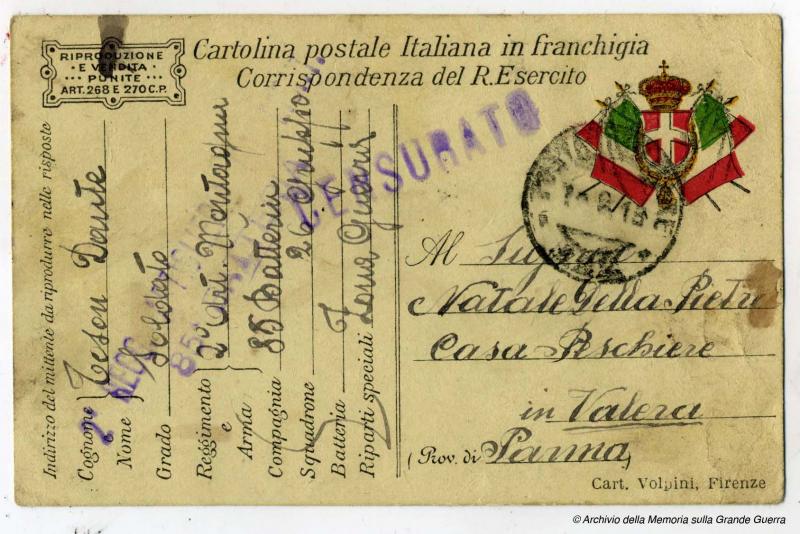 RIPRODUZIONE
E VENDITA
PUNITE
ART. 268 E 270 C.P.
Cartolina postale Italiana in franchigia
Corrispondenza del R. Esercito
Indirizzo del mittente da riprodurre nelle risposte
Cognome e Nome Teson Dante
Grado Soldato
Reggimento e Arma 2° Art. Montagna
Compagnia 85 Batteria
Squadrone 26
Batteria
Riparti speciali Zona Guerra
CENSURATO
Al Signor
Natale Della Pietra
Casa Peschiere
in Valera
(Prov. di Parma)
Cart. Volpini, Firenze
© Archivio della Memoria sulla Grande Guerra